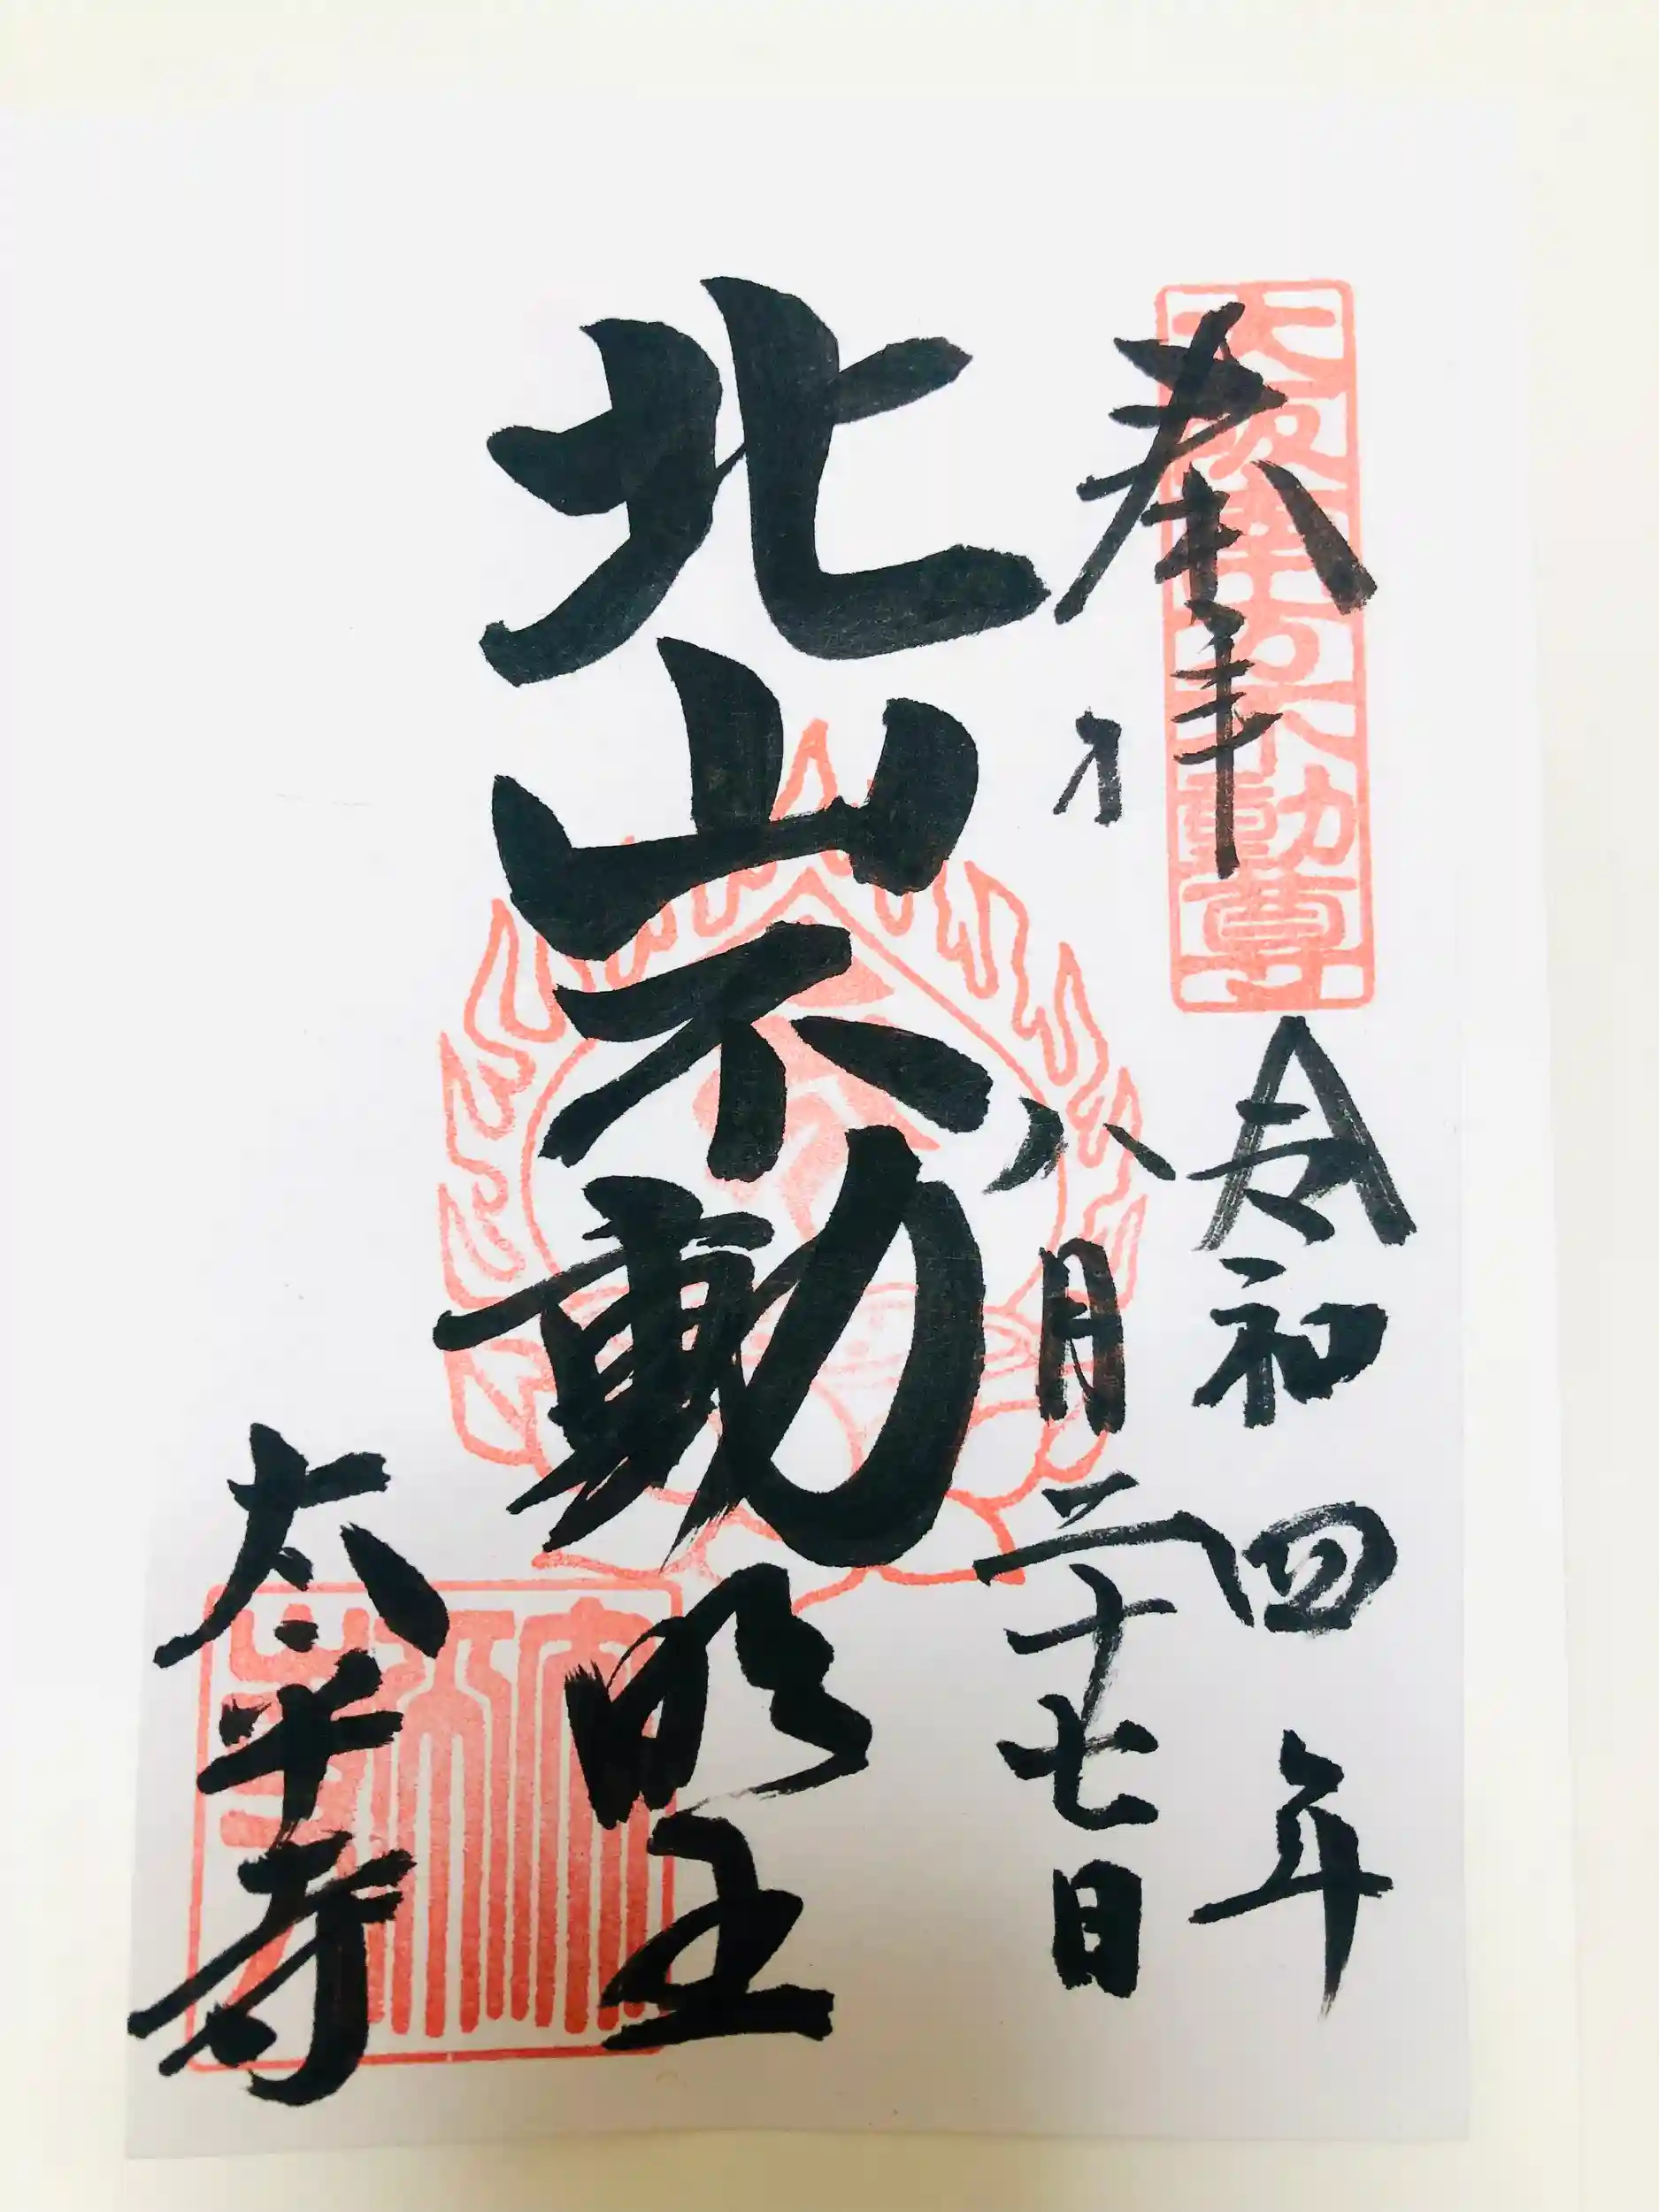 奉拝
大阪第十番不動尊
令和四年
八月二十七日
北山不動明王
太平寺